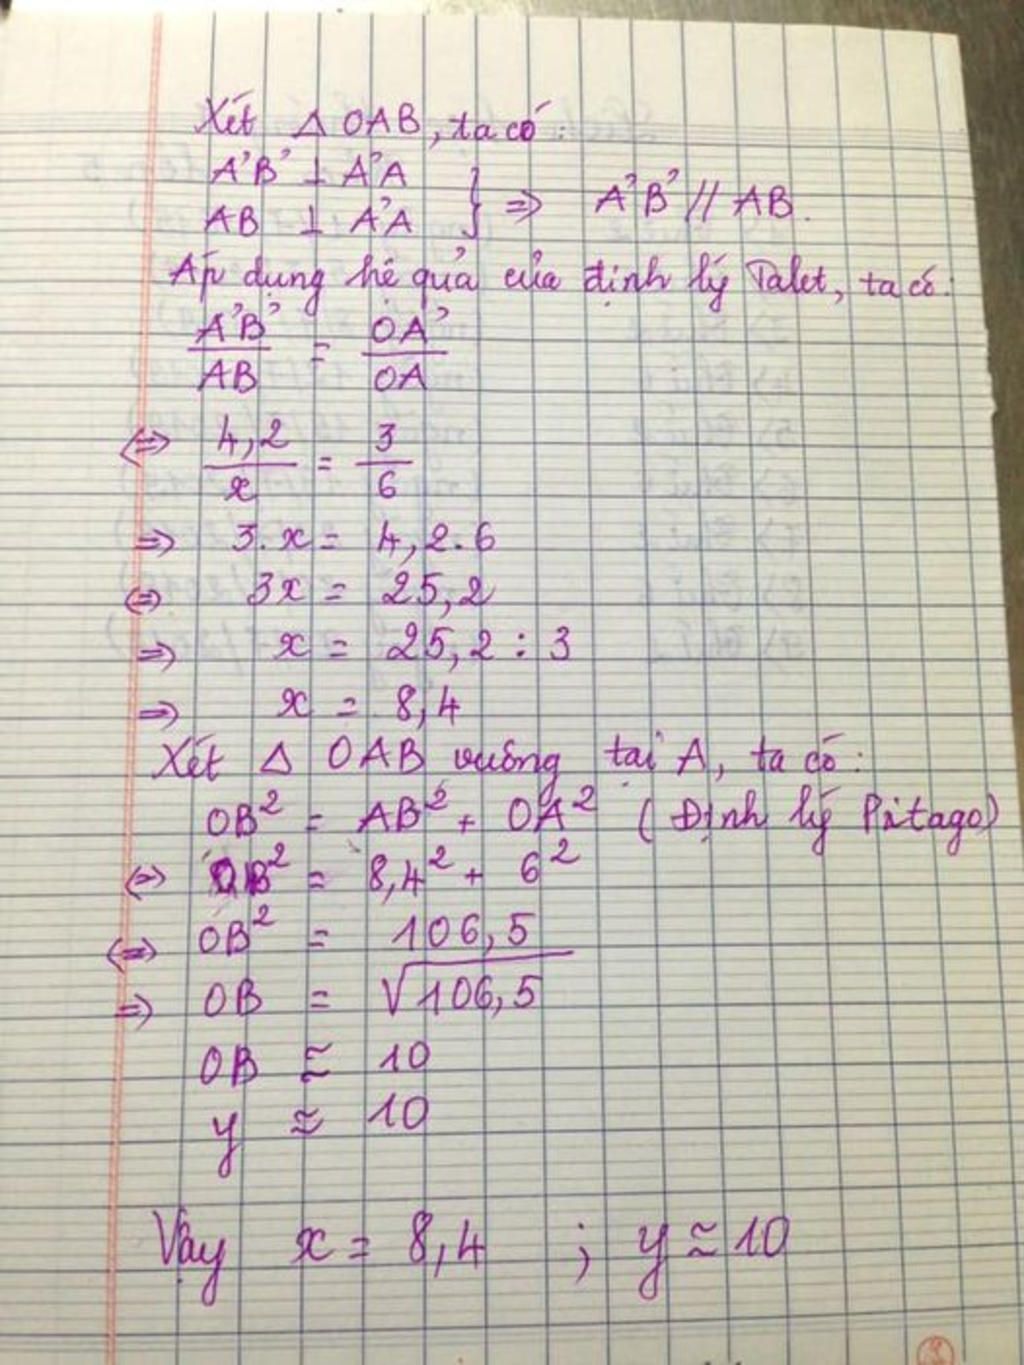 Xét Δ OAB, ta có:
A'B' ⊥ A'A
AB ⊥ A'A } => A'B' // AB.
Áp dụng hệ quả của định lý Talet, ta có:
A'B'/AB = OA'/OA
<=> 4,2/x = 3/6
=> 3.x = 4,2.6
<=> 3x = 25,2
=> x = 25,2 : 3
=> x = 8,4
Xét Δ OAB vuông tại A, ta có:
OB² = AB² + OA² (Định lý Pitago)
<=> OB² = 8,4² + 6²
<=> OB² = 106,5
=> OB = √106,5
OB ≈ 10
y ≈ 10
Vậy x = 8,4 ; y ≈ 10